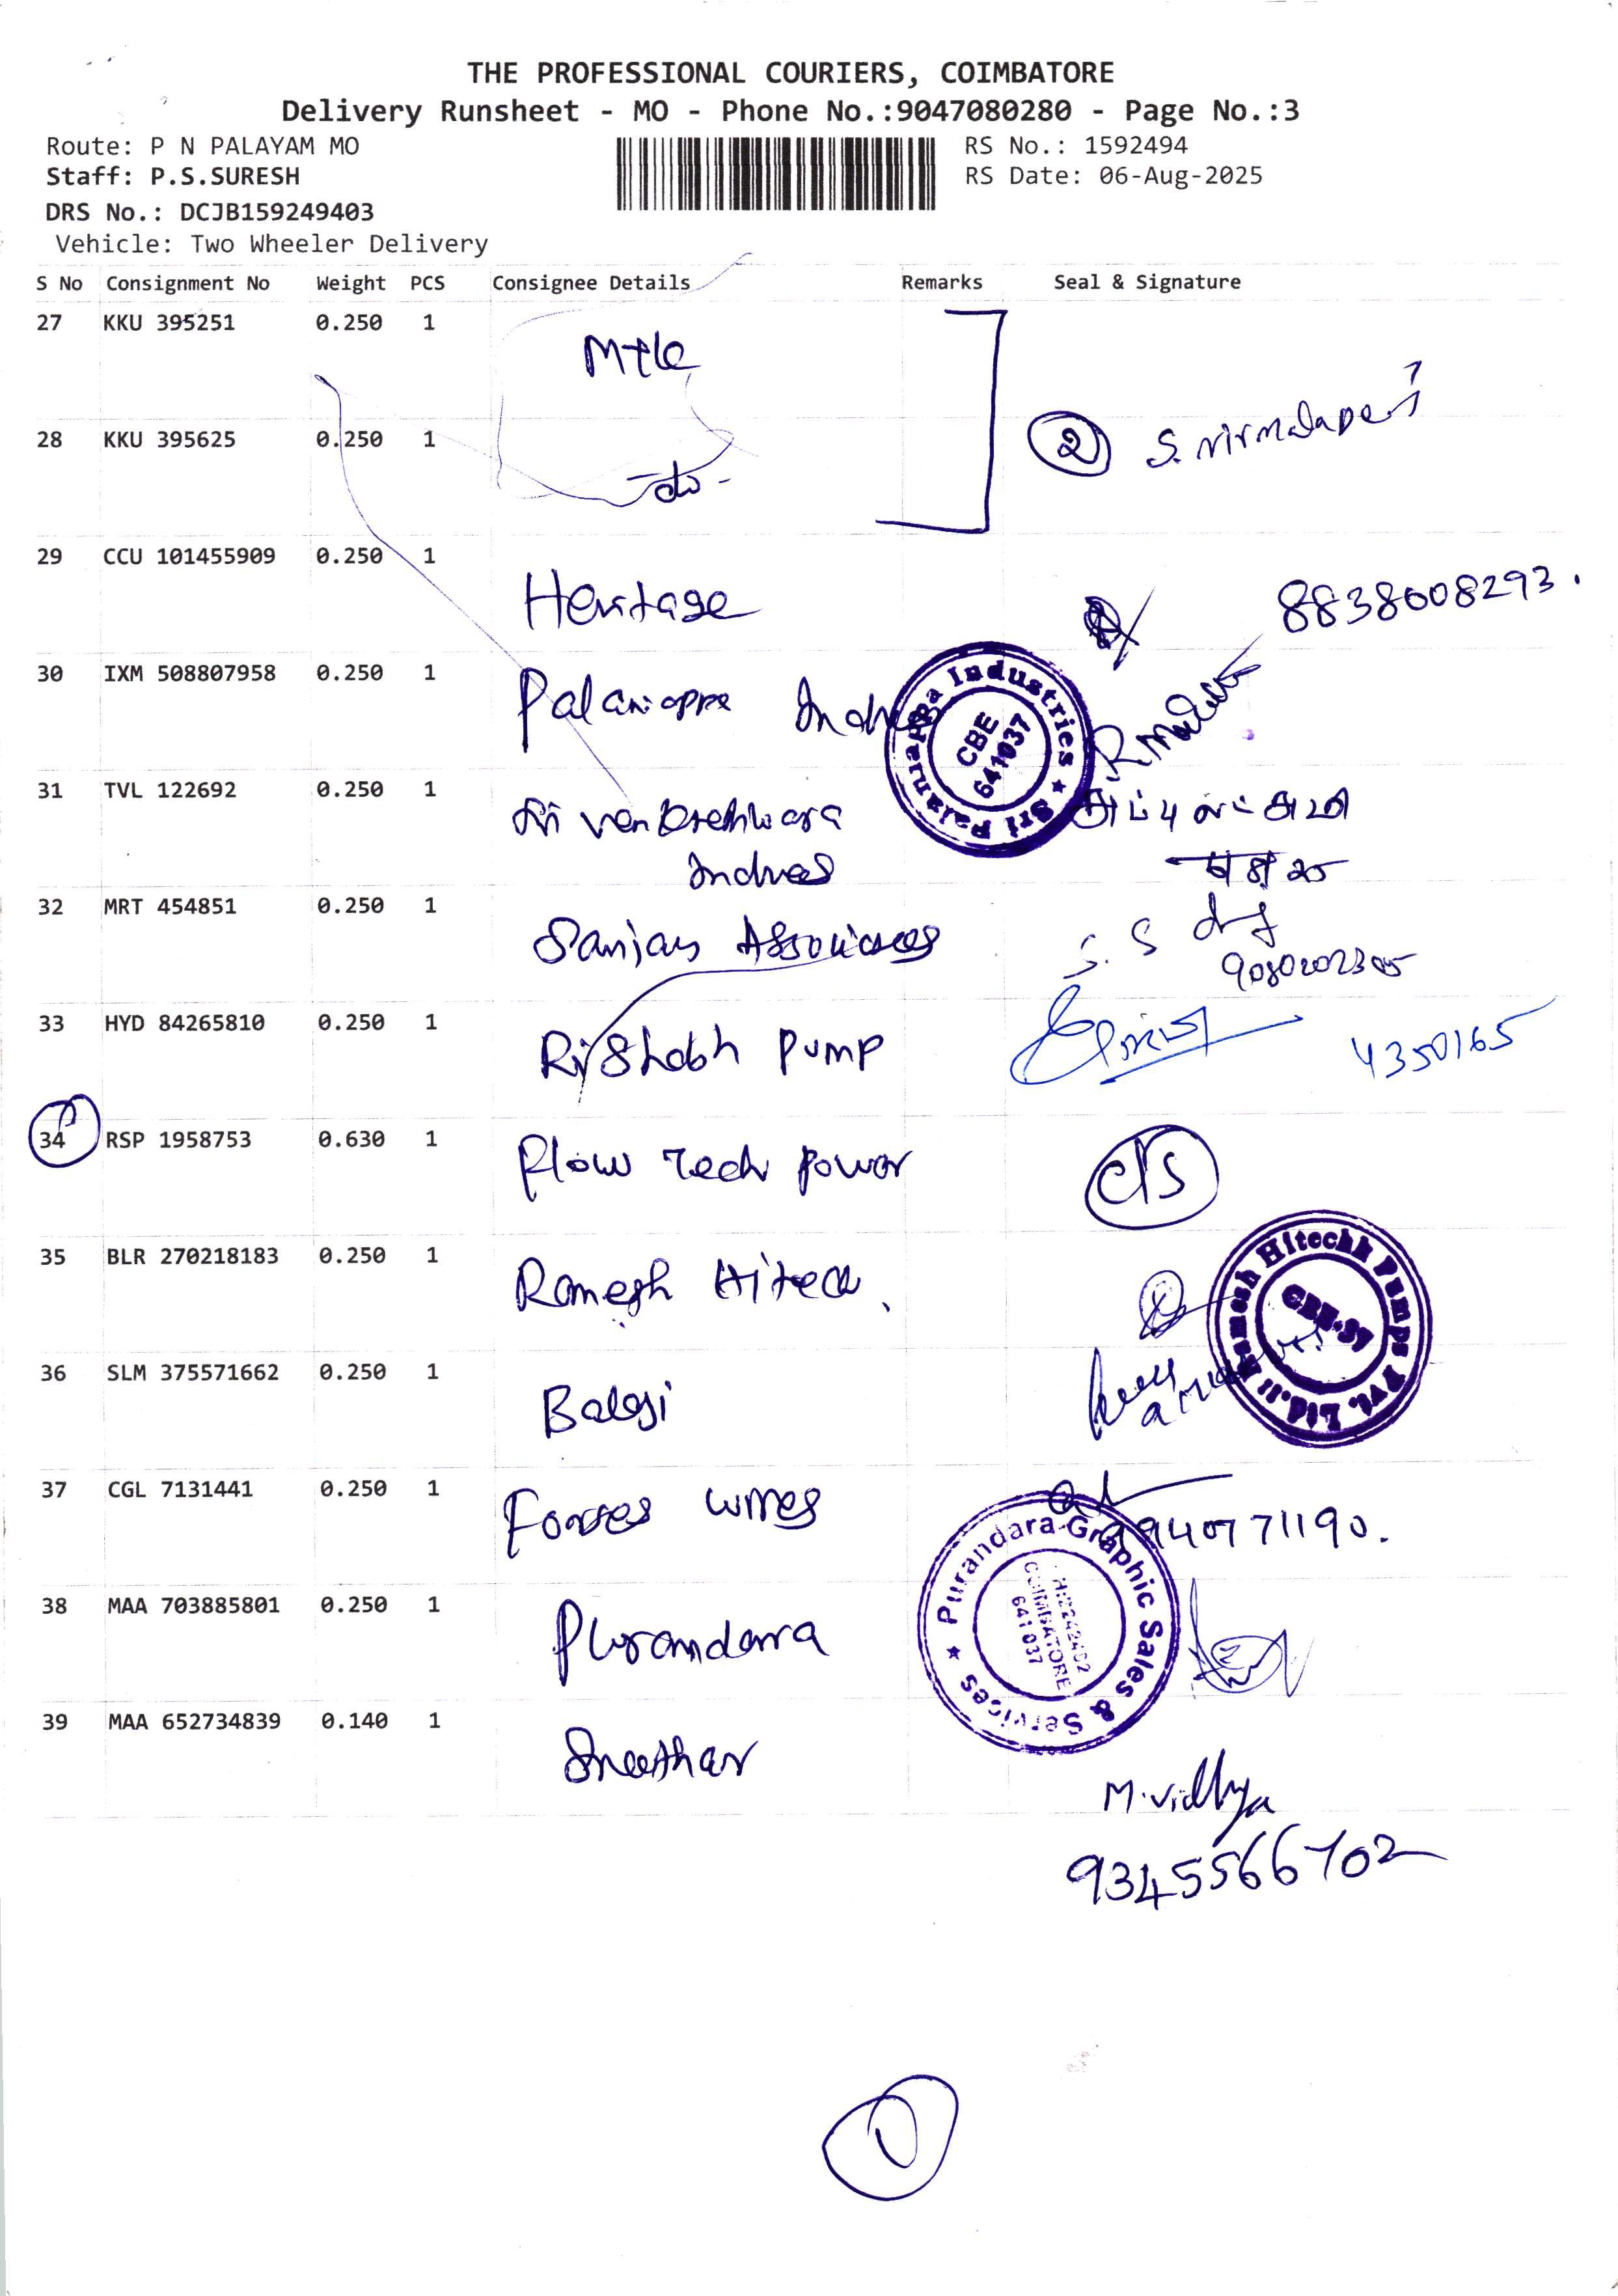 THE PROFESSIONAL COURIERS, COIMBATORE
Delivery Runsheet - MO - Phone No.:9047080280 - Page No.:3
Route: P N PALAYAM MO
RS No.: 1592494
Staff: P.S.SURESH
RS Date: 06-Aug-2025
DRS No.: DCJB159249403
Vehicle: Two Wheeler Delivery
S No Consignment No Weight PCS Consignee Details Remarks Seal & Signature
27 KKU 395251 0.250 1
28 KKU 395625 0.250 1 -do- 2
29 CCU 101455909 0.250 1 Heritage 8838608293.
30 IXM 508807958 0.250 1 Palaniappa
Sri Palanappa Industries
CBE
641037
31 TVL 122692 0.250 1 Sri Venkateshwara
32 MRT 454851 0.250 1 Sanjay Associates S.S
33 HYD 84265810 0.250 1 Rishabh Pump 4350165
34 RSP 1958753 0.630 1 Flow Tech Power
35 BLR 270218183 0.250 1 Ramesh Hitech
Ramesh Hitechh Pumps Pvt. Ltd.
CBE-37
36 SLM 375571662 0.250 1 Balaji
37 CGL 7131441 0.250 1 Forses wires 9940771190.
38 MAA 703885801 0.250 1 Purandara
Purandara Graphic Sales & Services
COIMBATORE
641 037
39 MAA 652734839 0.140 1
M. Vidhya
9345566702